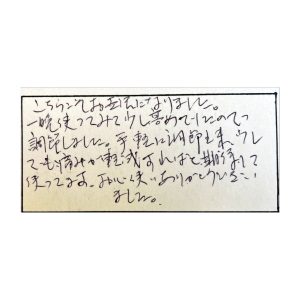 こちらこそお世話になりました。
一晩使ってみて少し高めでしたので
調節しました。手軽に調節出来、少し
でも痛みが軽減すればと期待して
使ってます。お心使いありがとうござい
ました。